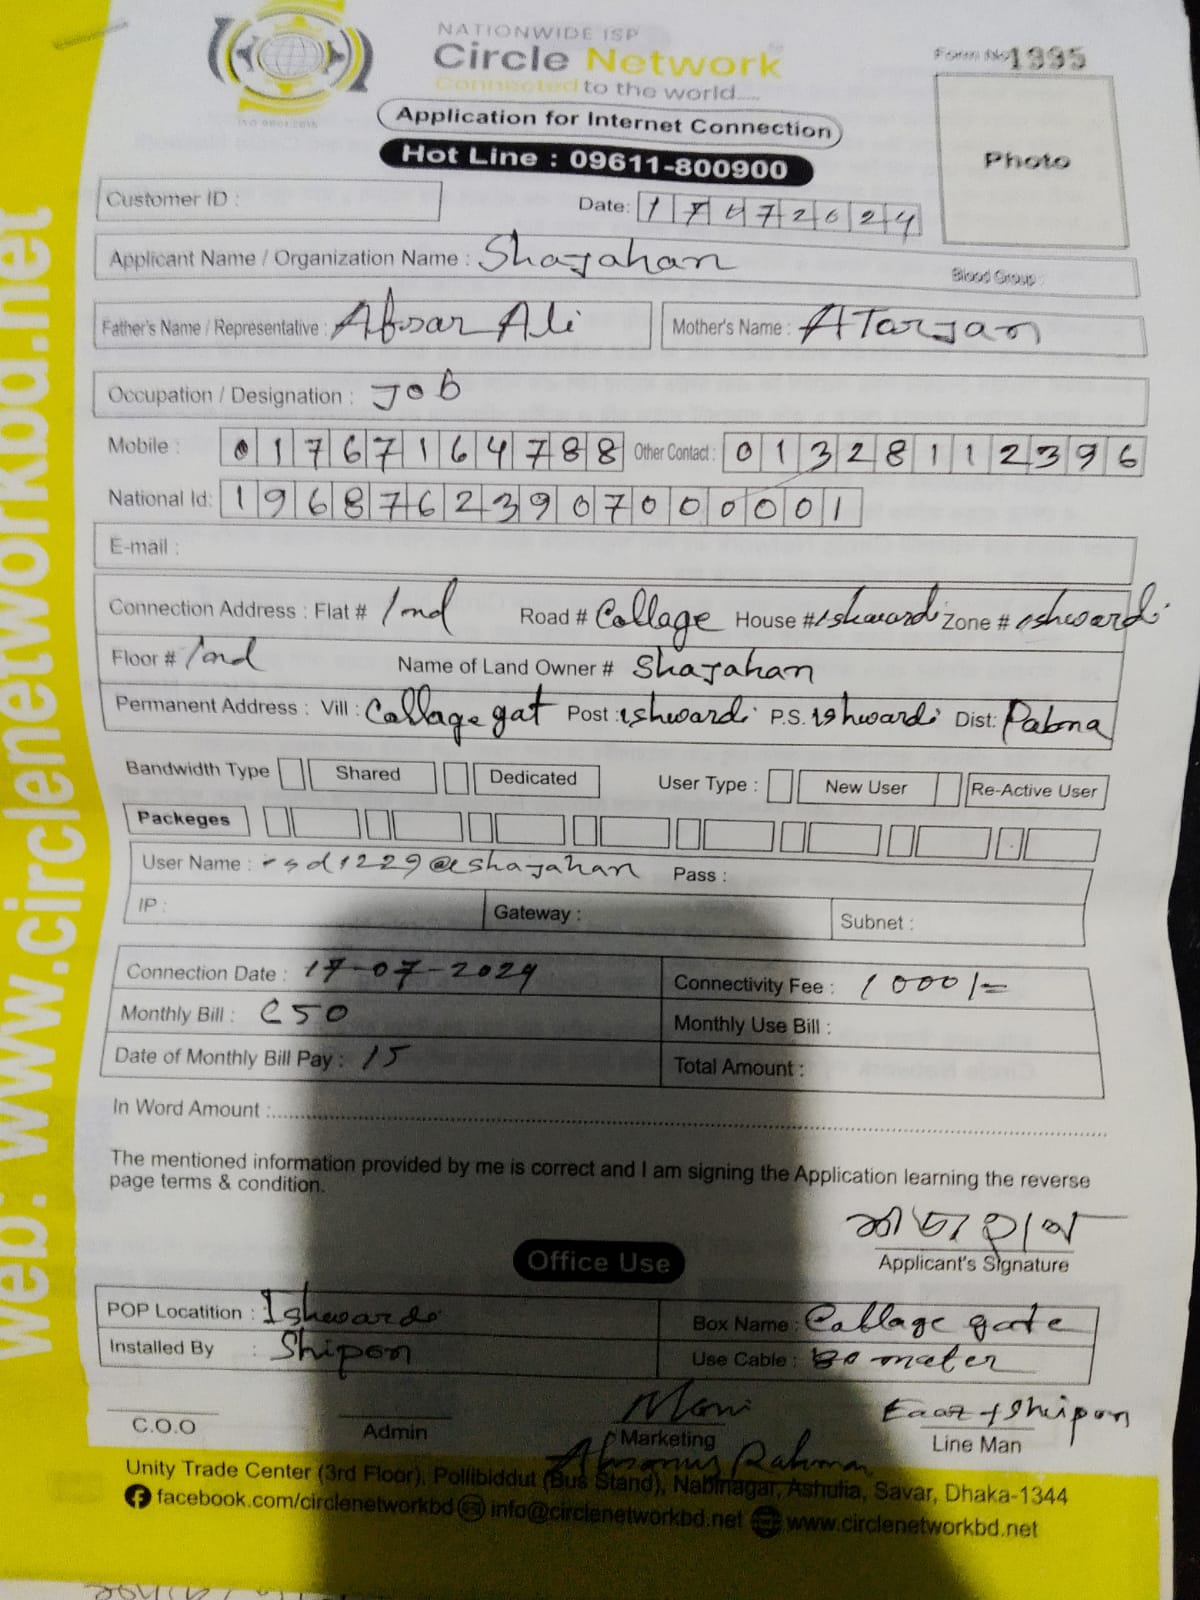 NATIONWIDE ISP
Circle Network
Connected to the world.....
ISO 9001:2015
Form No 1995
Application for Internet Connection
Hot Line : 09611-800900
Photo
Customer ID :
Date: 17072024
Applicant Name / Organization Name : Shajahan
Blood Group :
Father's Name / Representative : Afsar Ali Mother's Name : ATarjan
Occupation / Designation : Job
Mobile : 01767164788 Other Contact : 01328112396
National Id: 19687623907000001
E-mail :
Connection Address : Flat # 1nd Road # Collage House # ishwardi Zone # ishwardi
Floor # 1nd Name of Land Owner # Shajahan
Permanent Address : Vill : Collage gat Post : ishwardi P.S. ishwardi Dist: Pabna
Bandwidth Type Shared Dedicated User Type : New User Re-Active User
Packeges
User Name : rsd1229@shajahan Pass :
IP : Gateway : Subnet :
Connection Date : 17-07-2024 Connectivity Fee : 1000/=
Monthly Bill : 650 Monthly Use Bill :
Date of Monthly Bill Pay : 15 Total Amount :
In Word Amount :
The mentioned information provided by me is correct and I am signing the Application learning the reverse
page terms & condition.
Applicant's Signature
Office Use
POP Locatition : Ishwardi Box Name : Collage gate
Installed By : Shipon Use Cable : 80 mater
Moni Shipon
C.O.O Admin Marketing Line Man
Rahman
Unity Trade Center (3rd Floor), Pollibiddut (Bus Stand), Nabinagar, Ashulia, Savar, Dhaka-1344
facebook.com/circlenetworkbd info@circlenetworkbd.net www.circlenetworkbd.net
web: www.circlenetworkbd.net